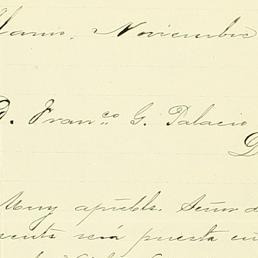 Noviembre
D. Franco G. Palacio
D
Muy apreble. Señor d
sente será puesta en